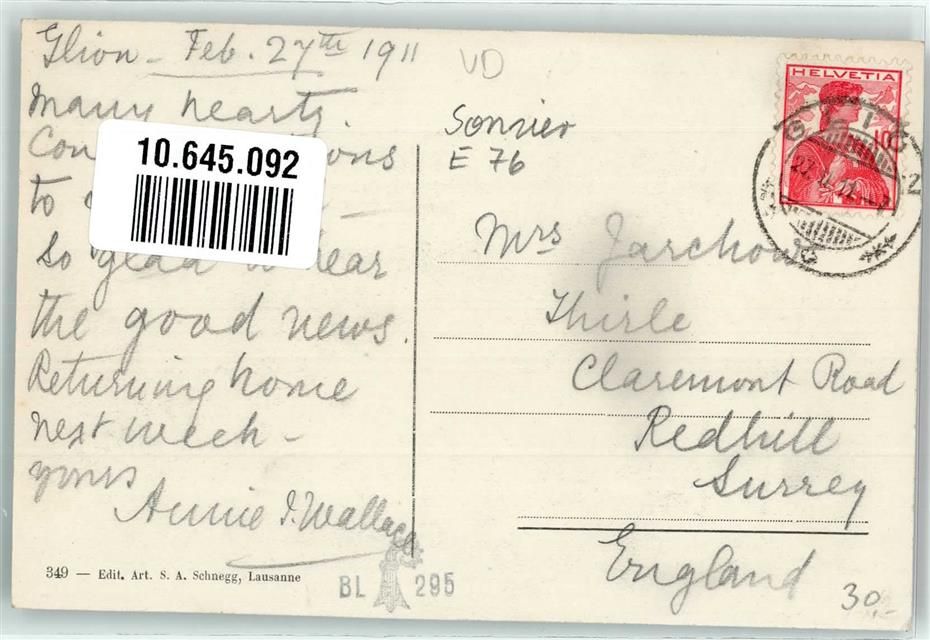 Glion - Feb. 27th 1911
Many hearty.
Con ons
to
so glad to hear
the good news.
Returning home
next week -
yours
Annie J. Wallace
10.645.092
VD
Sonzier
E 76
HELVETIA
10
Mrs Jarchow
Thirle
Claremont Road
Redhill
Surrey
England
349 — Edit. Art. S. A. Schnegg, Lausanne
BL 295
30,-